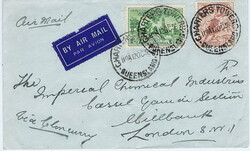 Air Mail
BY AIR MAIL
PAR AVION
CHARTERS TOWERS
QUEENSLAND
CHARTERS TOWERS
QUEENSLAND
The Imperial Chemical Industries
Millbank
Via Cloncurry
London S.W.1